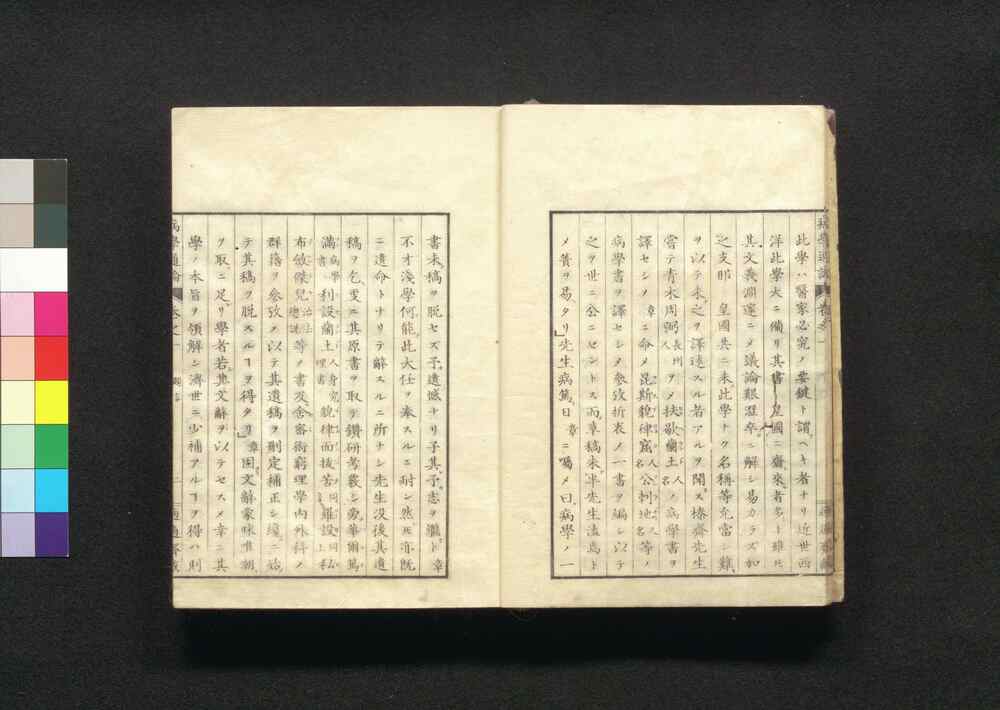 此學ハ醫家必究ノ要鍵ト謂ヘキ者ナリ近世西
洋此學大ニ備リ其書 皇國ニ齎來者多ト雖モ
其文義淵邃ニメ議論艱澀卒ニ解シ易カラズ加
之支那 皇國共ニ未此學ナク名稱等充當シ難
ヲ以テ未之ヲ譯述スル者アルヲ聞ス榛齋先生
嘗テ青木周弼長州人ヲメ扶歇蘭土人名ノ病學書ヲ
譯セシメ章ニ命メ昆斯貌律窟人名公刺地名人名等ノ
病學書ヲ譯セシメ參攷折衷ノ一書ヲ編シ以テ
之ヲ世ニ公ニセントス而草稿未半先生溘焉ト
メ簀ヲ易タリ先生病篤日章ニ囑メ曰病學ノ一
書未稿ヲ脱セズ予遺憾ナリ子其予志ヲ繼ト章
不才淺學何能此大任ヲ奉スルニ耐ン然モ亦既
ニ遺命トナリテ辭スルニ所ナシ先生没後其遺
稿ヲ乞更ニ其原書ヲ取テ鑽研考覈シ旁華爾篤
滿病學書利設蘭土人身究理書貌律而抜苦同上羅設同上私
布斂傑兒治法總説等ノ書及舎密術窮理學内外科ノ
群籍ヲ參攷メ以テ其遺稿ヲ刪定補正シ纔ニ始
テ其稿ヲ脱スルヿヲ得タリ章固文辭蒙昧唯朝
ヲ取ニ足リ學者若其文辭ヲ以テセスメ幸ニ其
學ノ本旨ヲ領解シ濟世ニ少補アルヿヲ得ハ則
病學通論 卷之一